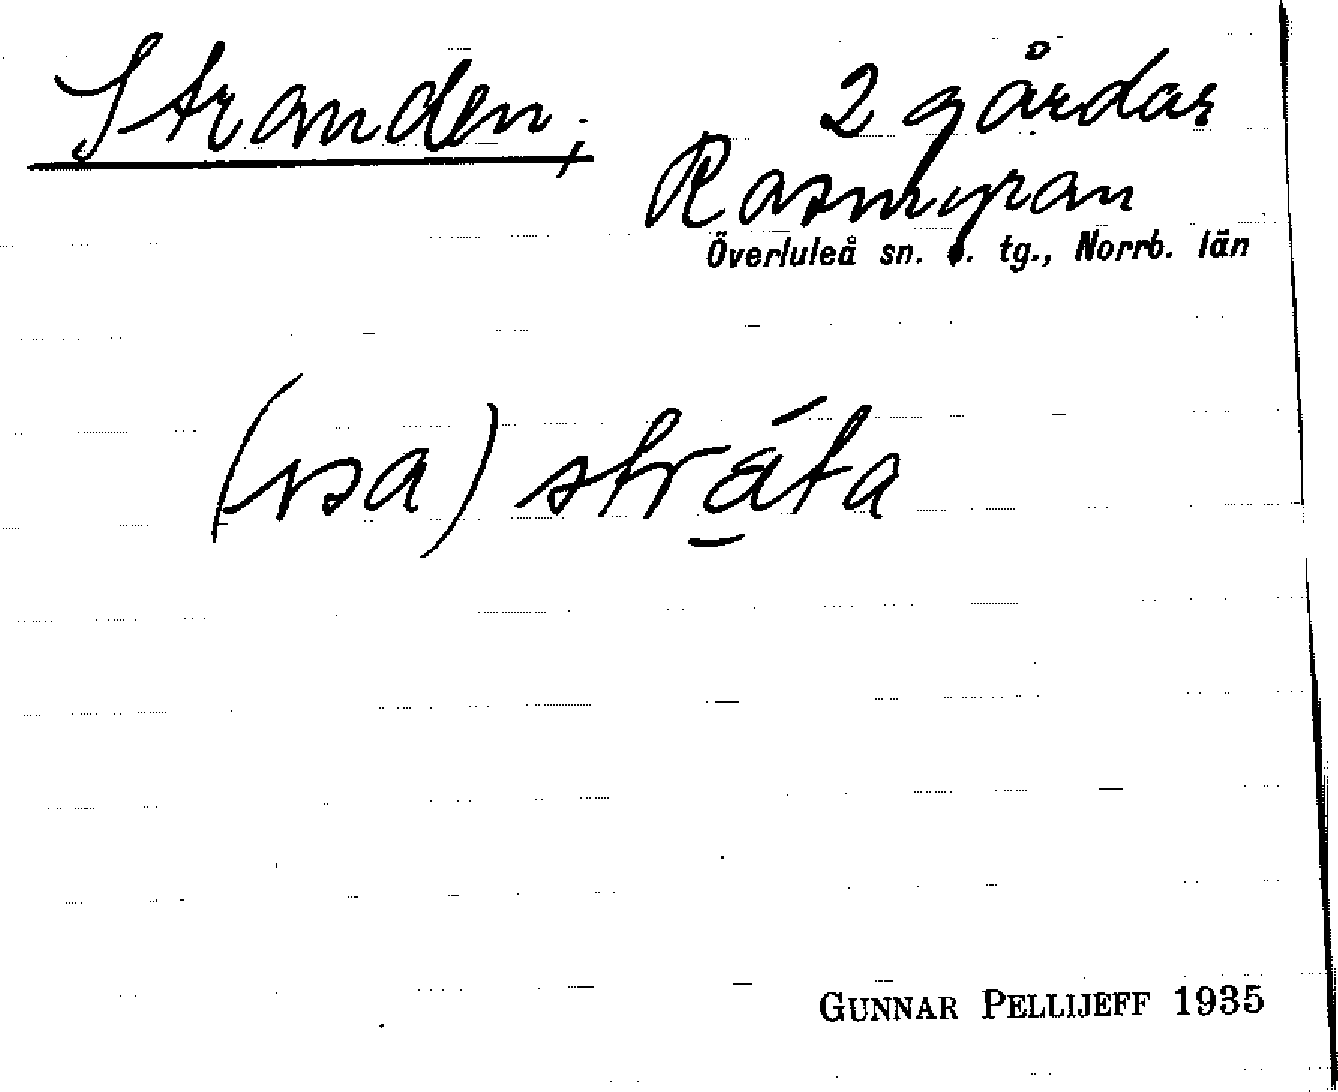 Stranden, 2 gårdar
Rasmyran
Överluleå sn. o. tg., Norrb. län
(vsa) stráta
GUNNAR PELLIJEFF 1935